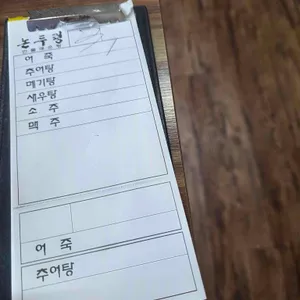 논두렁
어 죽
추어탕
메기탕
새우탕
소 주
맥 주
어 죽
추어탕